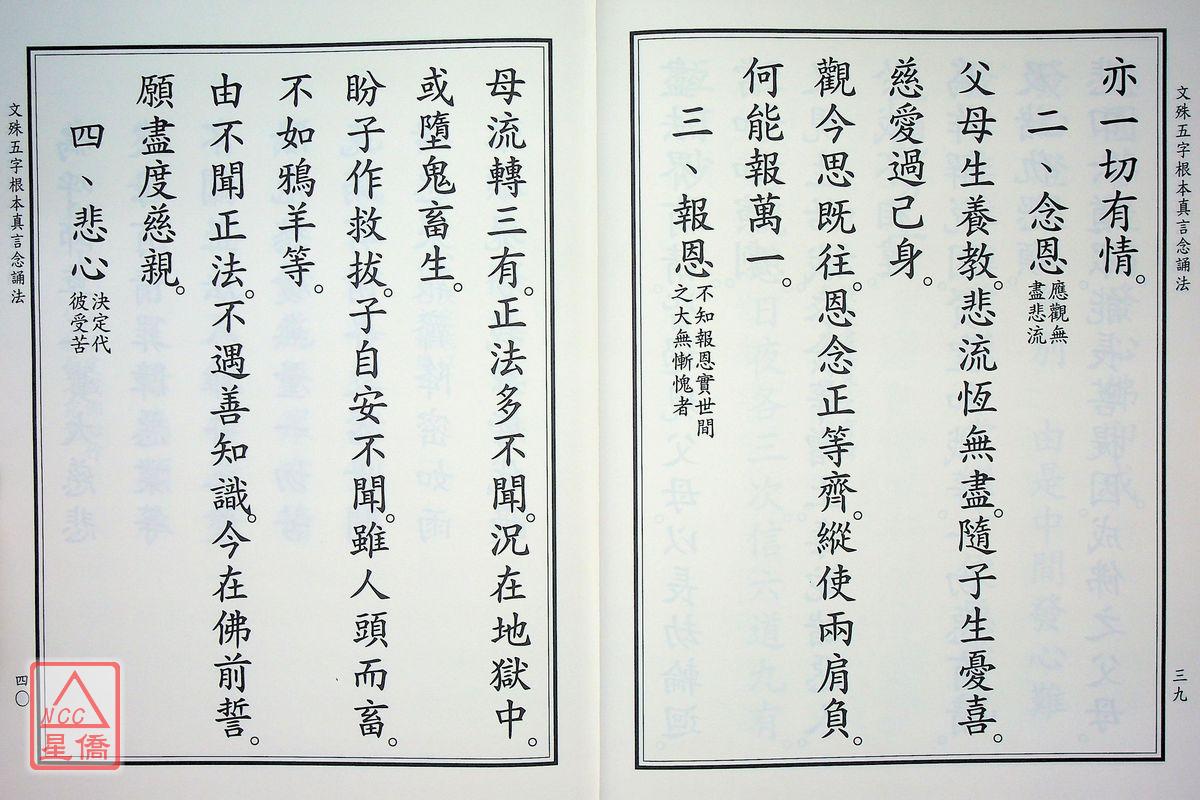 文殊五字根本真言念誦法
三九
亦一切有情。
二、念恩 應觀無
盡悲流
父母生養教。悲流恆無盡。隨子生憂喜。
慈愛過己身。
觀今思既往。恩念正等齊。縱使兩肩負。
何能報萬一。
三、報恩 不知報恩實世間
之大無慚愧者
母流轉三有。正法多不聞。況在地獄中。
或墮鬼畜生。
盼子作救拔。子自安不聞。雖人頭而畜。
不如鴉羊等。
由不聞正法。不遇善知識。今在佛前誓。
願盡度慈親。
四、悲心 決定代
彼受苦
文殊五字根本真言念誦法
四〇
NCC
星僑